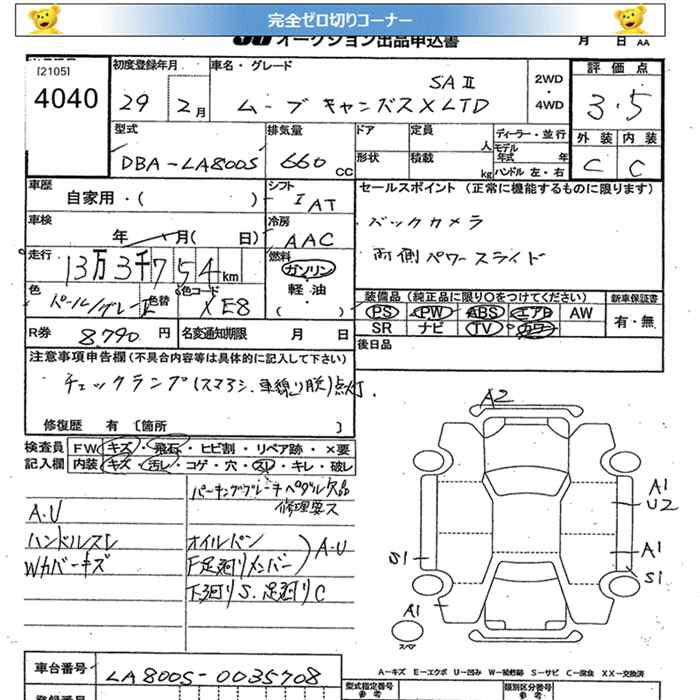 完全ゼロ切りコーナー
オークション出品申込書
月 日 AA
[2105]
4040
初度登録年月
29 2月
車名・グレード
SAⅡ
ムーブキャンバスXLTD
2WD
・
4WD
評価点
3.5
型式
DBA-LA800S
排気量
660 CC
ドア
定員
人
形状
積載
kg
ディーラー・並行
モデル年式 年
ハンドル 左・右
外装 内装
C C
車歴
自家用・( )
シフト
IAT
セールスポイント (正常に機能するものに限ります)
バックカメラ
両側パワースライド
車検
年 月( 日)
冷房
AAC
走行
13万3千754km
燃料
ガソリン
軽・油
( )
色
パール/グレーⅡ
色替
色コード
XE8
装備品 (純正品に限り○をつけてください)
PS PW ABS エアB AW
SR ナビ TV カワ
新車保証書
有・無
R券
8790円
名変通知期限 月 日
後日品
注意事項申告欄 (不具合内容等は具体的に記入して下さい)
チェックランプ(スマアシ、車線リ脱)点灯.
修復歴 有 〔箇所 〕
検査員
記入欄
FW キズ・飛石・ヒビ割・リペア跡・×要
内装 キズ・汚レ・コゲ・穴・スレ・キレ・破レ
パーキングブレーキペダル欠品
修理要ス
A.U
ハンドルスレ
Wカバーキズ
オイルパン
F足廻りメンバー
A.U
下廻りS.足廻りC
A2
A1
U2
A1
S1
S1
A1
スペア
車台番号
LA800S-0035708
A…キズ E…エクボ U…凹み W…補修跡 S…サビ C…腐食 XX…交換済
型式指定番号
参考
類別区分番号
参考